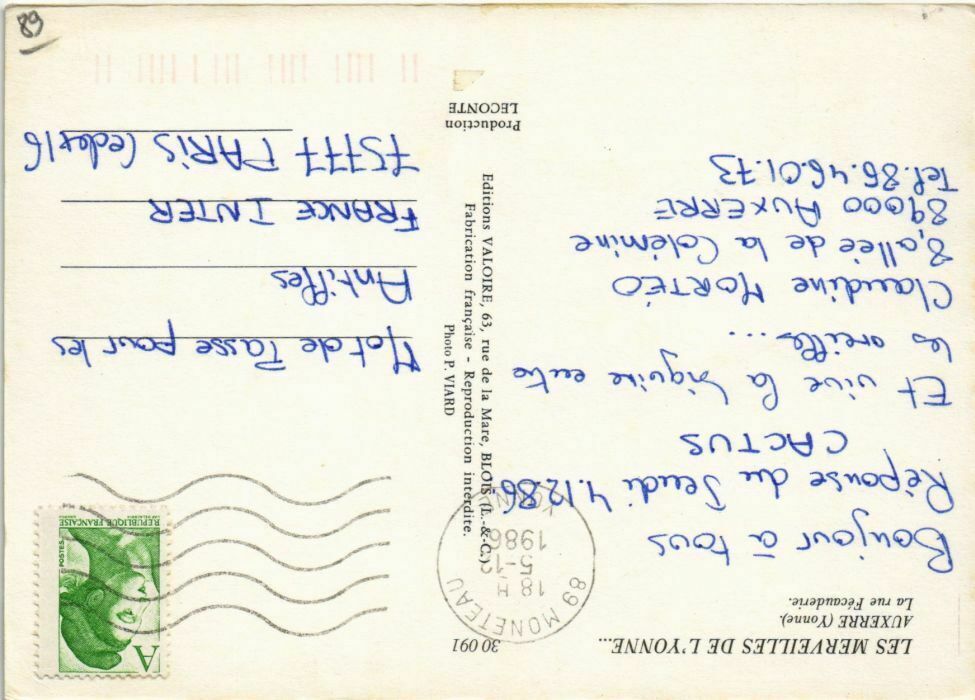 LES MERVEILLES DE L'YONNE...
AUXERRE (Yonne).
La rue Fécauderie.
30 091
Bonjour à tous
Réponse du Jeudi 4.12.86
CACTUS
Et vive la piquire entre
les oreilles...
Claudine MORTÉO
8, allée de la Colémine
89000 AUXERRE
Tel. 86.46.01.73
89 MONETEAU
18 H
5-12
1986
YONNE
Editions VALOIRE, 63, rue de la Mare, BLOIS (L.-&-C.)
Fabrication française - Reproduction interdite.
Photo P. VIARD
Production
LECONTE
A
REPUBLIQUE FRANÇAISE
POSTES
Mot de Passe pour les
Antilles
FRANCE INTER
75777 PARIS Cedex 16
89